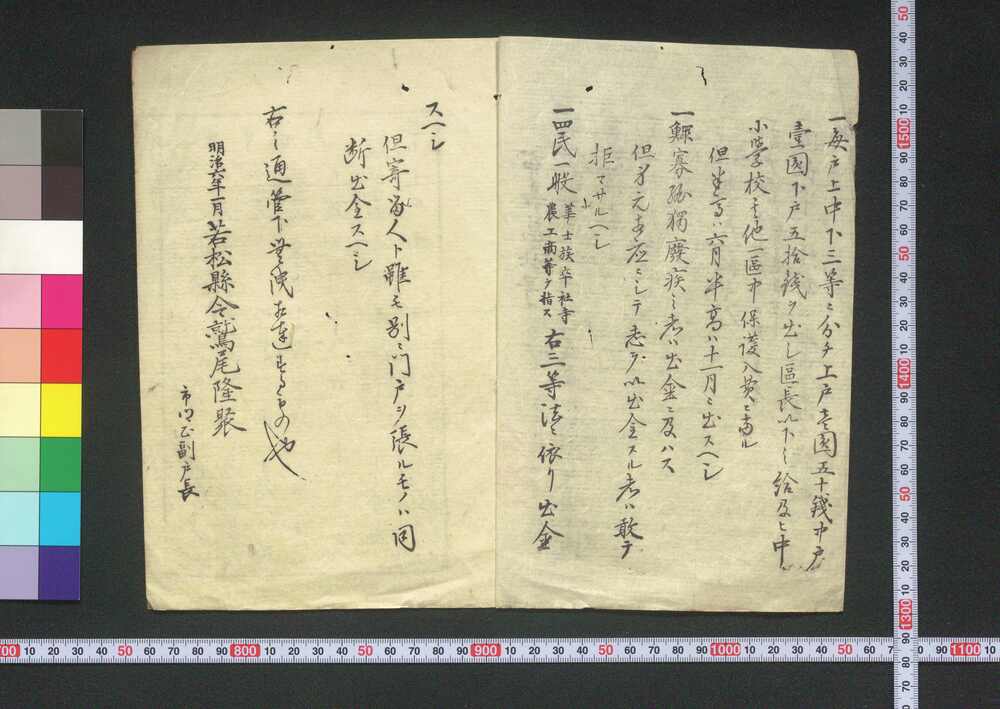 一毎戸上中下三等ニ分チ上戸壱圓五十錢中戸
壹圓下戸五拾錢ヲ出シ區長以下ノ給及ヒ中
小學校其他一區中保護入費ニ當ル
但半高ハ六月半高ハ十一月ニ出スヘシ
一鰥寡孤獨廢疾ノ者ハ出金ニ及ハス
但身元相應ニシテ志ヲ以出金スル者ハ敢テ
拒マサルヘシ
一四民一般 華士族卒社寺
農工商等ヲ指ス 右三等法ニ依リ出金
スヘシ
但寄留人ト雖モ別ニ門戸ヲ張ルモノハ同
断出金スヘシ
右之通管下無洩相達するもの也
明治六年一月 若松縣令鷲尾隆聚
副戸長